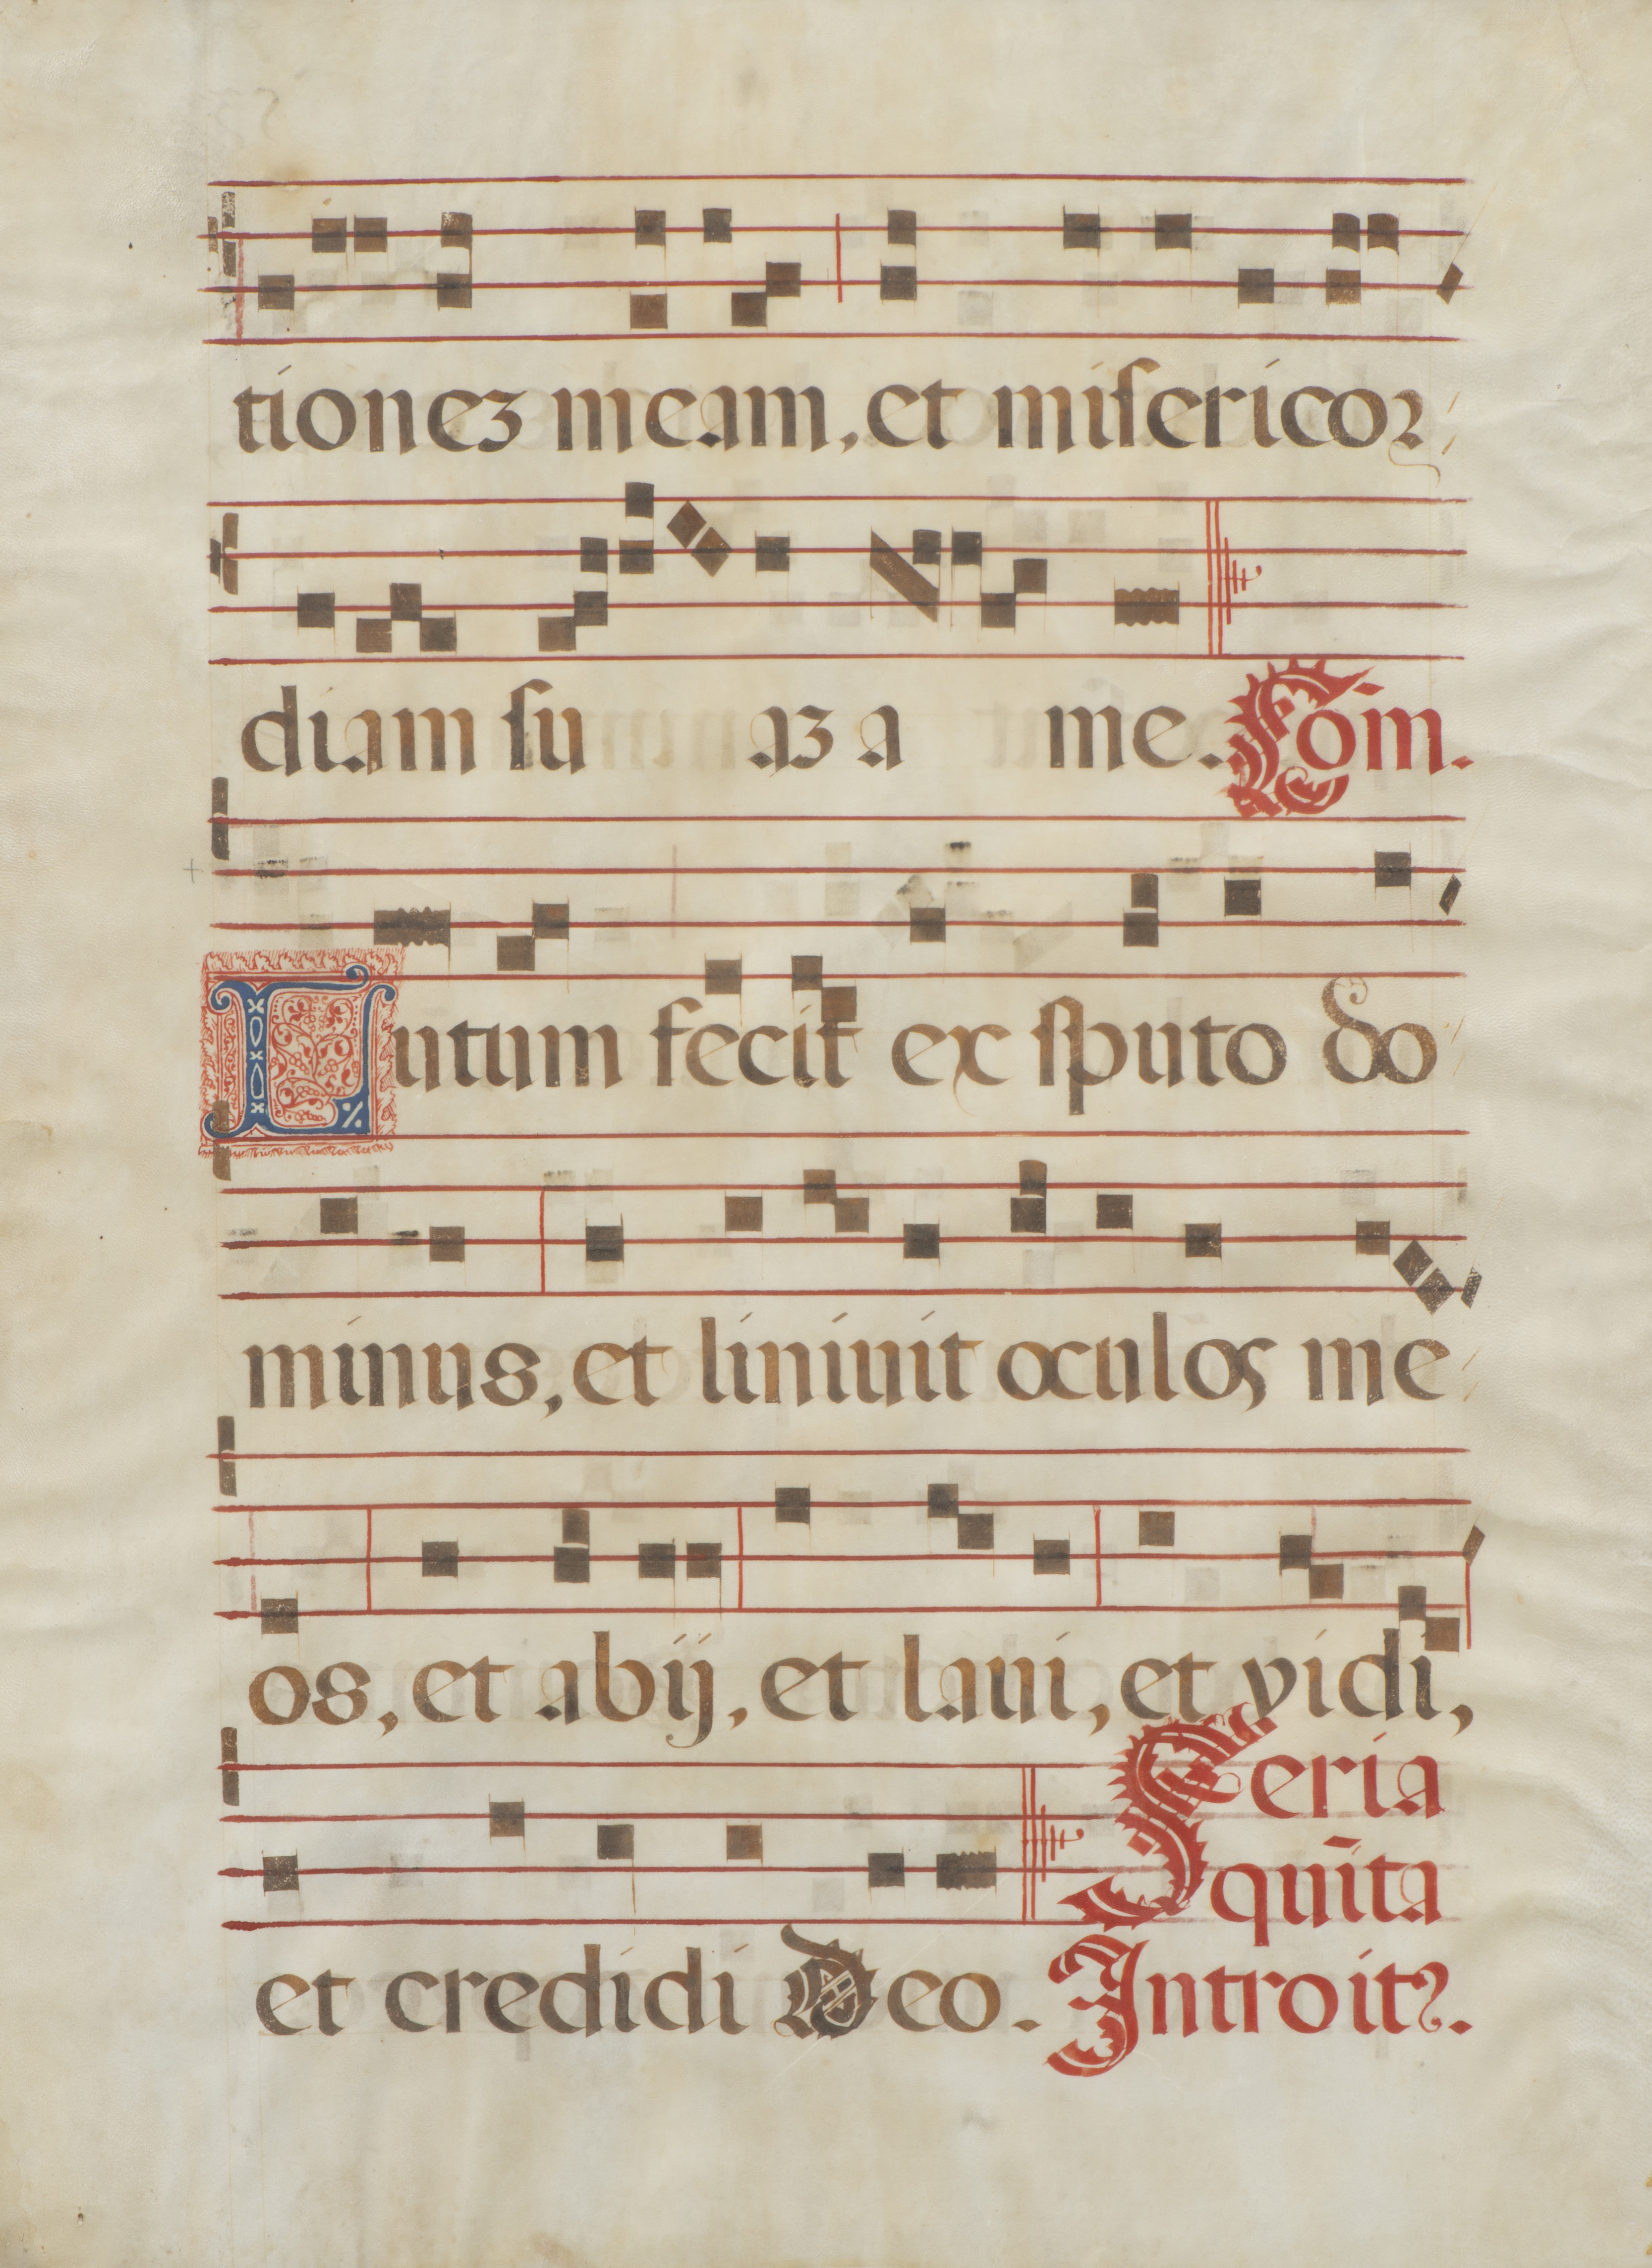 tionez meam, et misericor
diam suaz a me. Com.
Lutum fecit ex sputo do
minus, et liniuit oculos me
os, et abij, et laui, et vidi,
et credidi Deo. Feria
qūita
Introitꝰ.